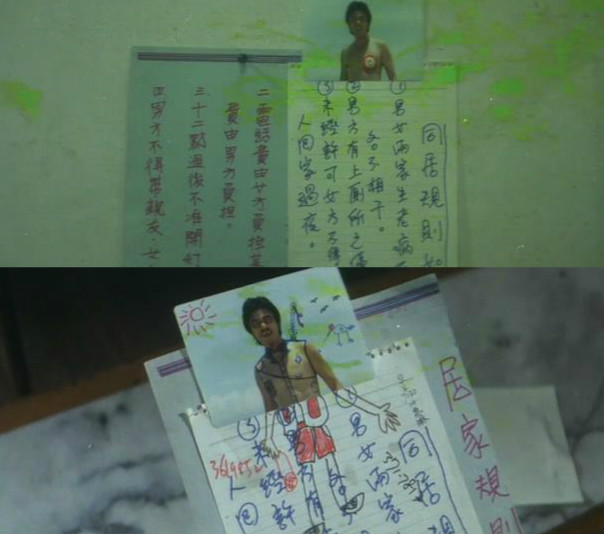 同居規則如
①男女兩家生老病
各不相干。
②男方有上廁所之優
③未經許可女方不得
人回家過夜。
二電話費由女方負擔
費由男方負擔。
三十二點過後不准開灯
四男方不得帶親友·女
居家規則
同居規
①男女兩家
各不
②男方有
③未經許
人回